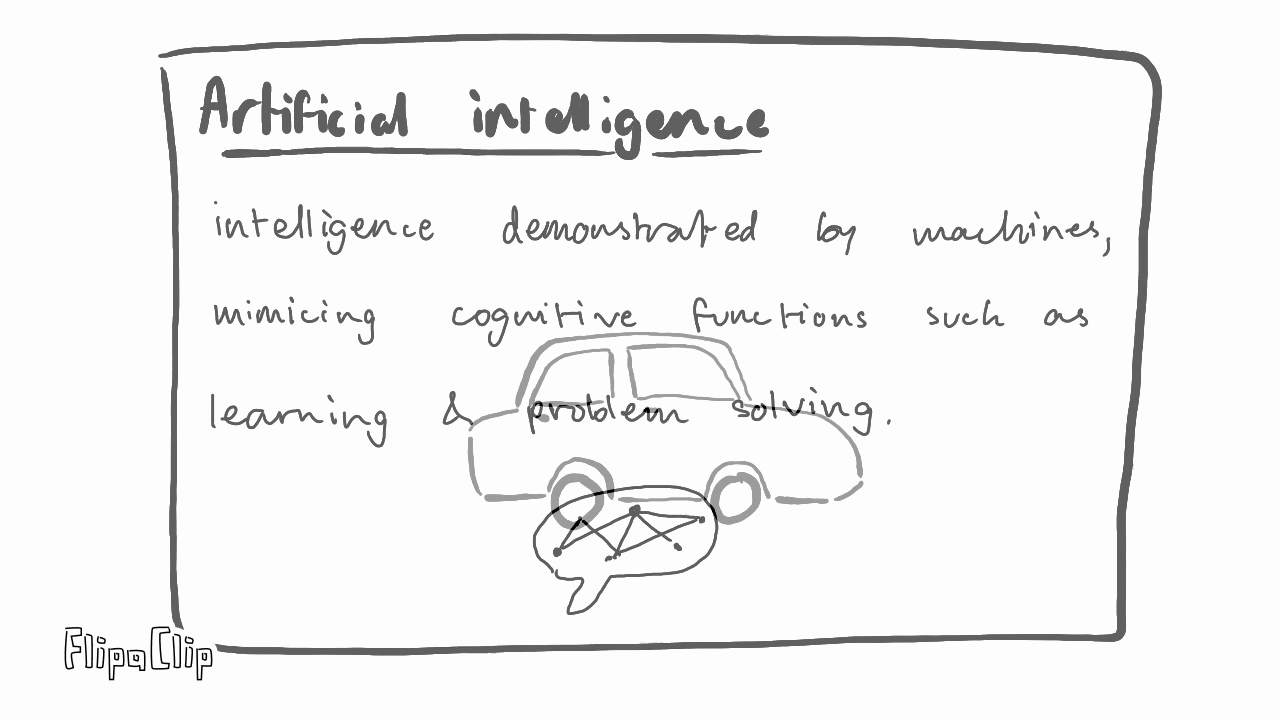 Artificial intelligence
intelligence demonstrated by machines,
mimicing cognitive functions such as
learning & problem solving.
FlipaClip